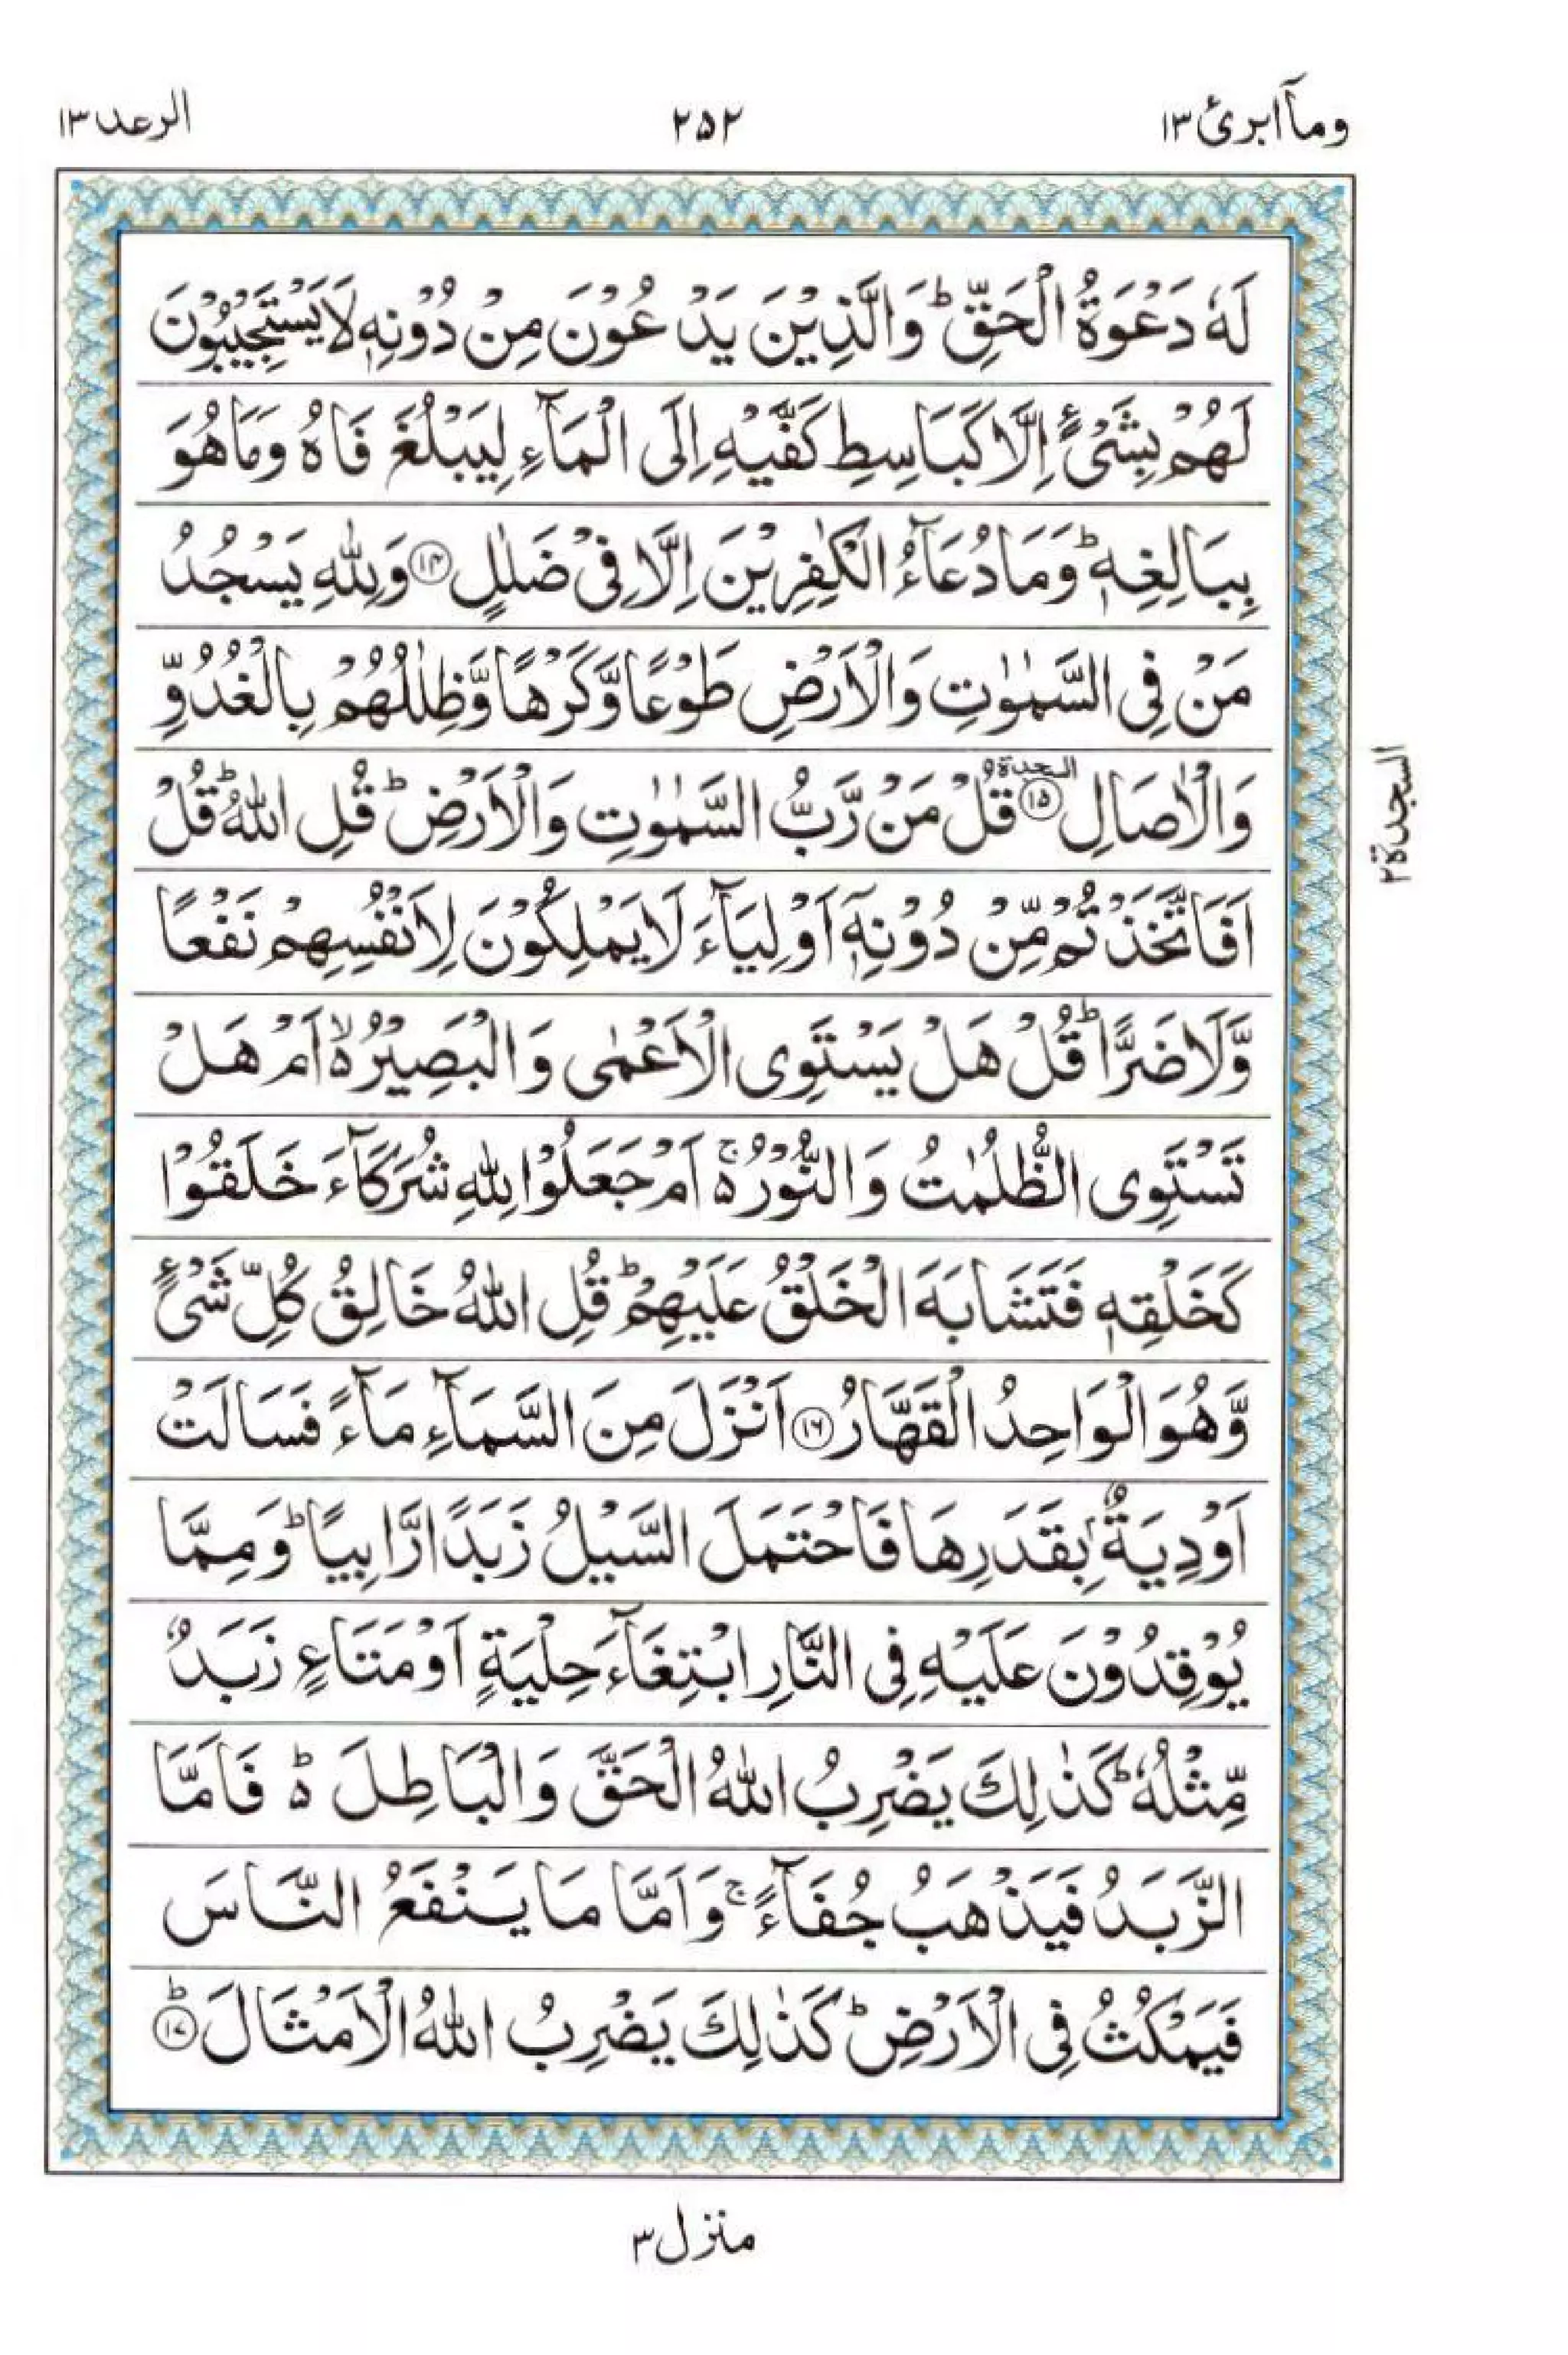 ومآابرئ ١٣
٢٥٢
الرعد ١٣
لَهٗ دَعْوَةُ الْحَقِّ ؕ وَالَّذِیْنَ یَدْعُوْنَ مِنْ دُوْنِهٖ لَا یَسْتَجِیْبُوْنَ
لَهُمْ بِشَیْءٍ اِلَّا كَبَاسِطِ كَفَّیْهِ اِلَی الْمَآءِ لِیَبْلُغَ فَاهُ وَمَا هُوَ
بِبَالِغِهٖ ؕ وَمَا دُعَآءُ الْكٰفِرِیْنَ اِلَّا فِیْ ضَلٰلٍ ۝١٤ وَلِلّٰهِ یَسْجُدُ
مَنْ فِی السَّمٰوٰتِ وَالْاَرْضِ طَوْعًا وَّكَرْهًا وَّظِلٰلُهُمْ بِالْغُدُوِّ
وَالْاٰصَالِ ۝١٥ السجدة قُلْ مَنْ رَّبُّ السَّمٰوٰتِ وَالْاَرْضِ ؕ قُلِ اللّٰهُ ؕ قُلْ
اَفَاتَّخَذْتُمْ مِّنْ دُوْنِهٖۤ اَوْلِیَآءَ لَا یَمْلِكُوْنَ لِاَنْفُسِهِمْ نَفْعًا
وَّلَا ضَرًّا ؕ قُلْ هَلْ یَسْتَوِی الْاَعْمٰی وَالْبَصِیْرُ ۙ۬ اَمْ هَلْ
تَسْتَوِی الظُّلُمٰتُ وَالنُّوْرُ ۚ۬ اَمْ جَعَلُوْا لِلّٰهِ شُرَكَآءَ خَلَقُوْا
كَخَلْقِهٖ فَتَشَابَهَ الْخَلْقُ عَلَیْهِمْ ؕ قُلِ اللّٰهُ خَالِقُ كُلِّ شَیْءٍ
وَّهُوَ الْوَاحِدُ الْقَهَّارُ ۝١٦ اَنْزَلَ مِنَ السَّمَآءِ مَآءً فَسَالَتْ
اَوْدِیَةٌۢ بِقَدَرِهَا فَاحْتَمَلَ السَّیْلُ زَبَدًا رَّابِیًا ؕ وَمِمَّا
یُوْقِدُوْنَ عَلَیْهِ فِی النَّارِ ابْتِغَآءَ حِلْیَةٍ اَوْ مَتَاعٍ زَبَدٌ
مِّثْلُهٗ ؕ كَذٰلِكَ یَضْرِبُ اللّٰهُ الْحَقَّ وَالْبَاطِلَ ؕ۬ فَاَمَّا
الزَّبَدُ فَیَذْهَبُ جُفَآءً ۚ وَاَمَّا مَا یَنْفَعُ النَّاسَ
فَیَمْكُثُ فِی الْاَرْضِ ؕ كَذٰلِكَ یَضْرِبُ اللّٰهُ الْاَمْثَالَ ؕ۝١٧
السجدة ٢
منزل ٣